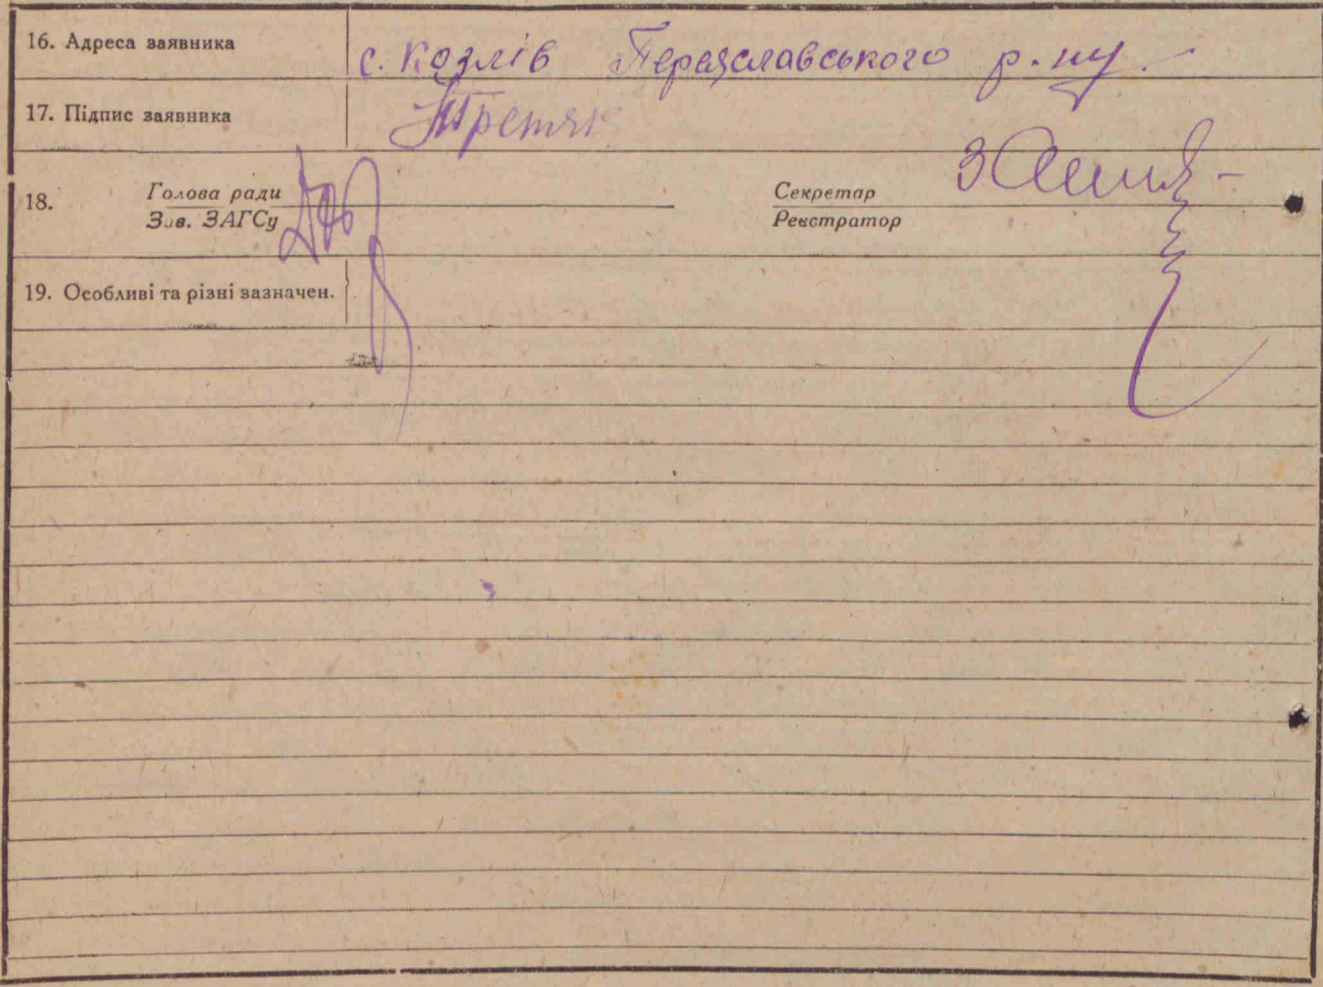 16. Адреса заявника с. Козлів Переяславського р.ну.
17. Підпис заявника Третяк
18. Голова ради Секретар
Зав. ЗАГСу Реєстратор
19. Особливі та різні зазначен.